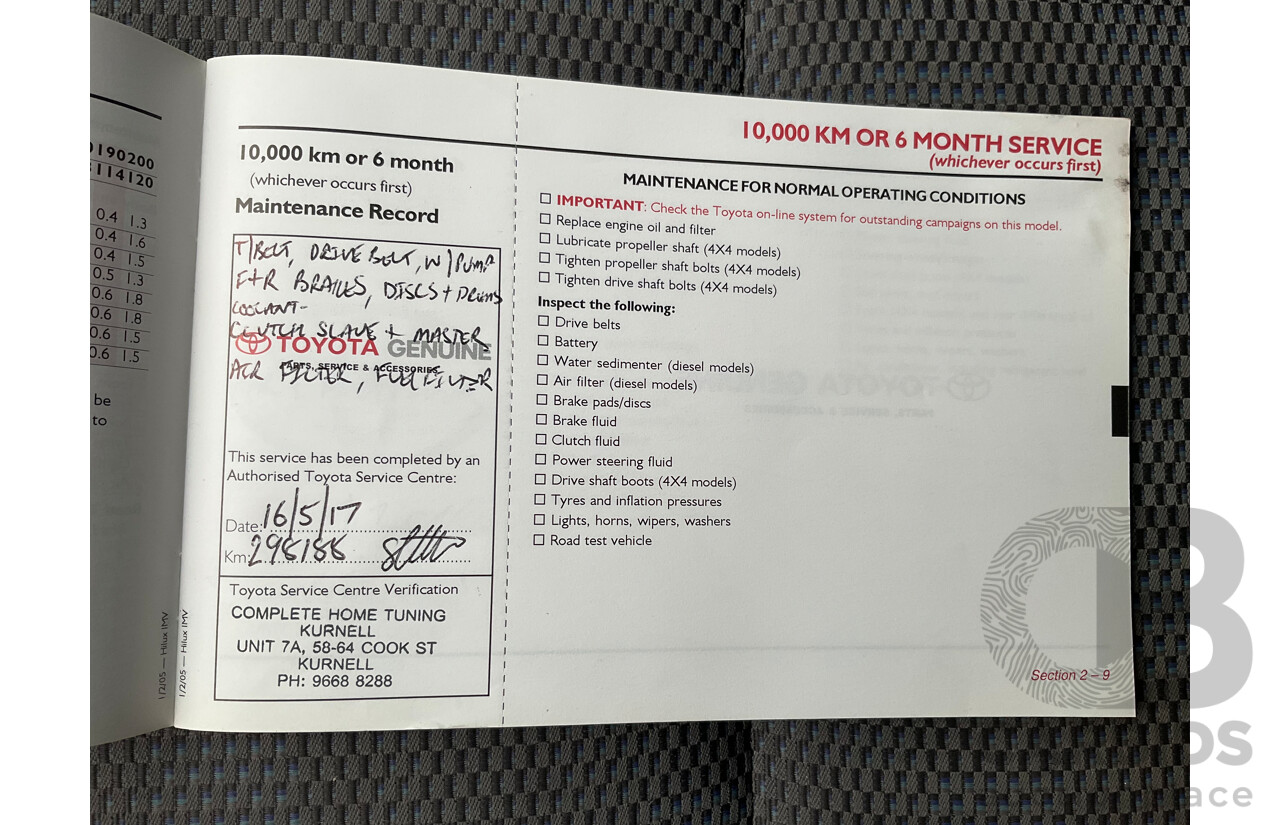 0190200
114120
0.4 1.3
0.4 1.6
0.4 1.5
0.5 1.3
0.6 1.8
0.6 1.8
0.6 1.5
0.6 1.5
be
to
1/2/05 — Hilux IMV
1/2/05 — Hilux IMV
10,000 km or 6 month
(whichever occurs first)
Maintenance Record
T/BELT, DRIVE BELT, W/PUMP
F+R BRAKES, DISCS + DRUMS
COOLANT-
CLUTCH SLAVE + MASTER
TOYOTA GENUINE
PARTS, SERVICE & ACCESSORIES
AIR FILTER, FUEL FILTER
This service has been completed by an
Authorised Toyota Service Centre:
Date: 16/5/17
Km: 298188
Toyota Service Centre Verification
COMPLETE HOME TUNING
KURNELL
UNIT 7A, 58-64 COOK ST
KURNELL
PH: 9668 8288
10,000 KM OR 6 MONTH SERVICE
(whichever occurs first)
MAINTENANCE FOR NORMAL OPERATING CONDITIONS
IMPORTANT: Check the Toyota on-line system for outstanding campaigns on this model.
Replace engine oil and filter
Lubricate propeller shaft (4X4 models)
Tighten propeller shaft bolts (4X4 models)
Tighten drive shaft bolts (4X4 models)
Inspect the following:
Drive belts
Battery
Water sedimenter (diesel models)
Air filter (diesel models)
Brake pads/discs
Brake fluid
Clutch fluid
Power steering fluid
Drive shaft boots (4X4 models)
Tyres and inflation pressures
Lights, horns, wipers, washers
Road test vehicle
Section 2 – 9